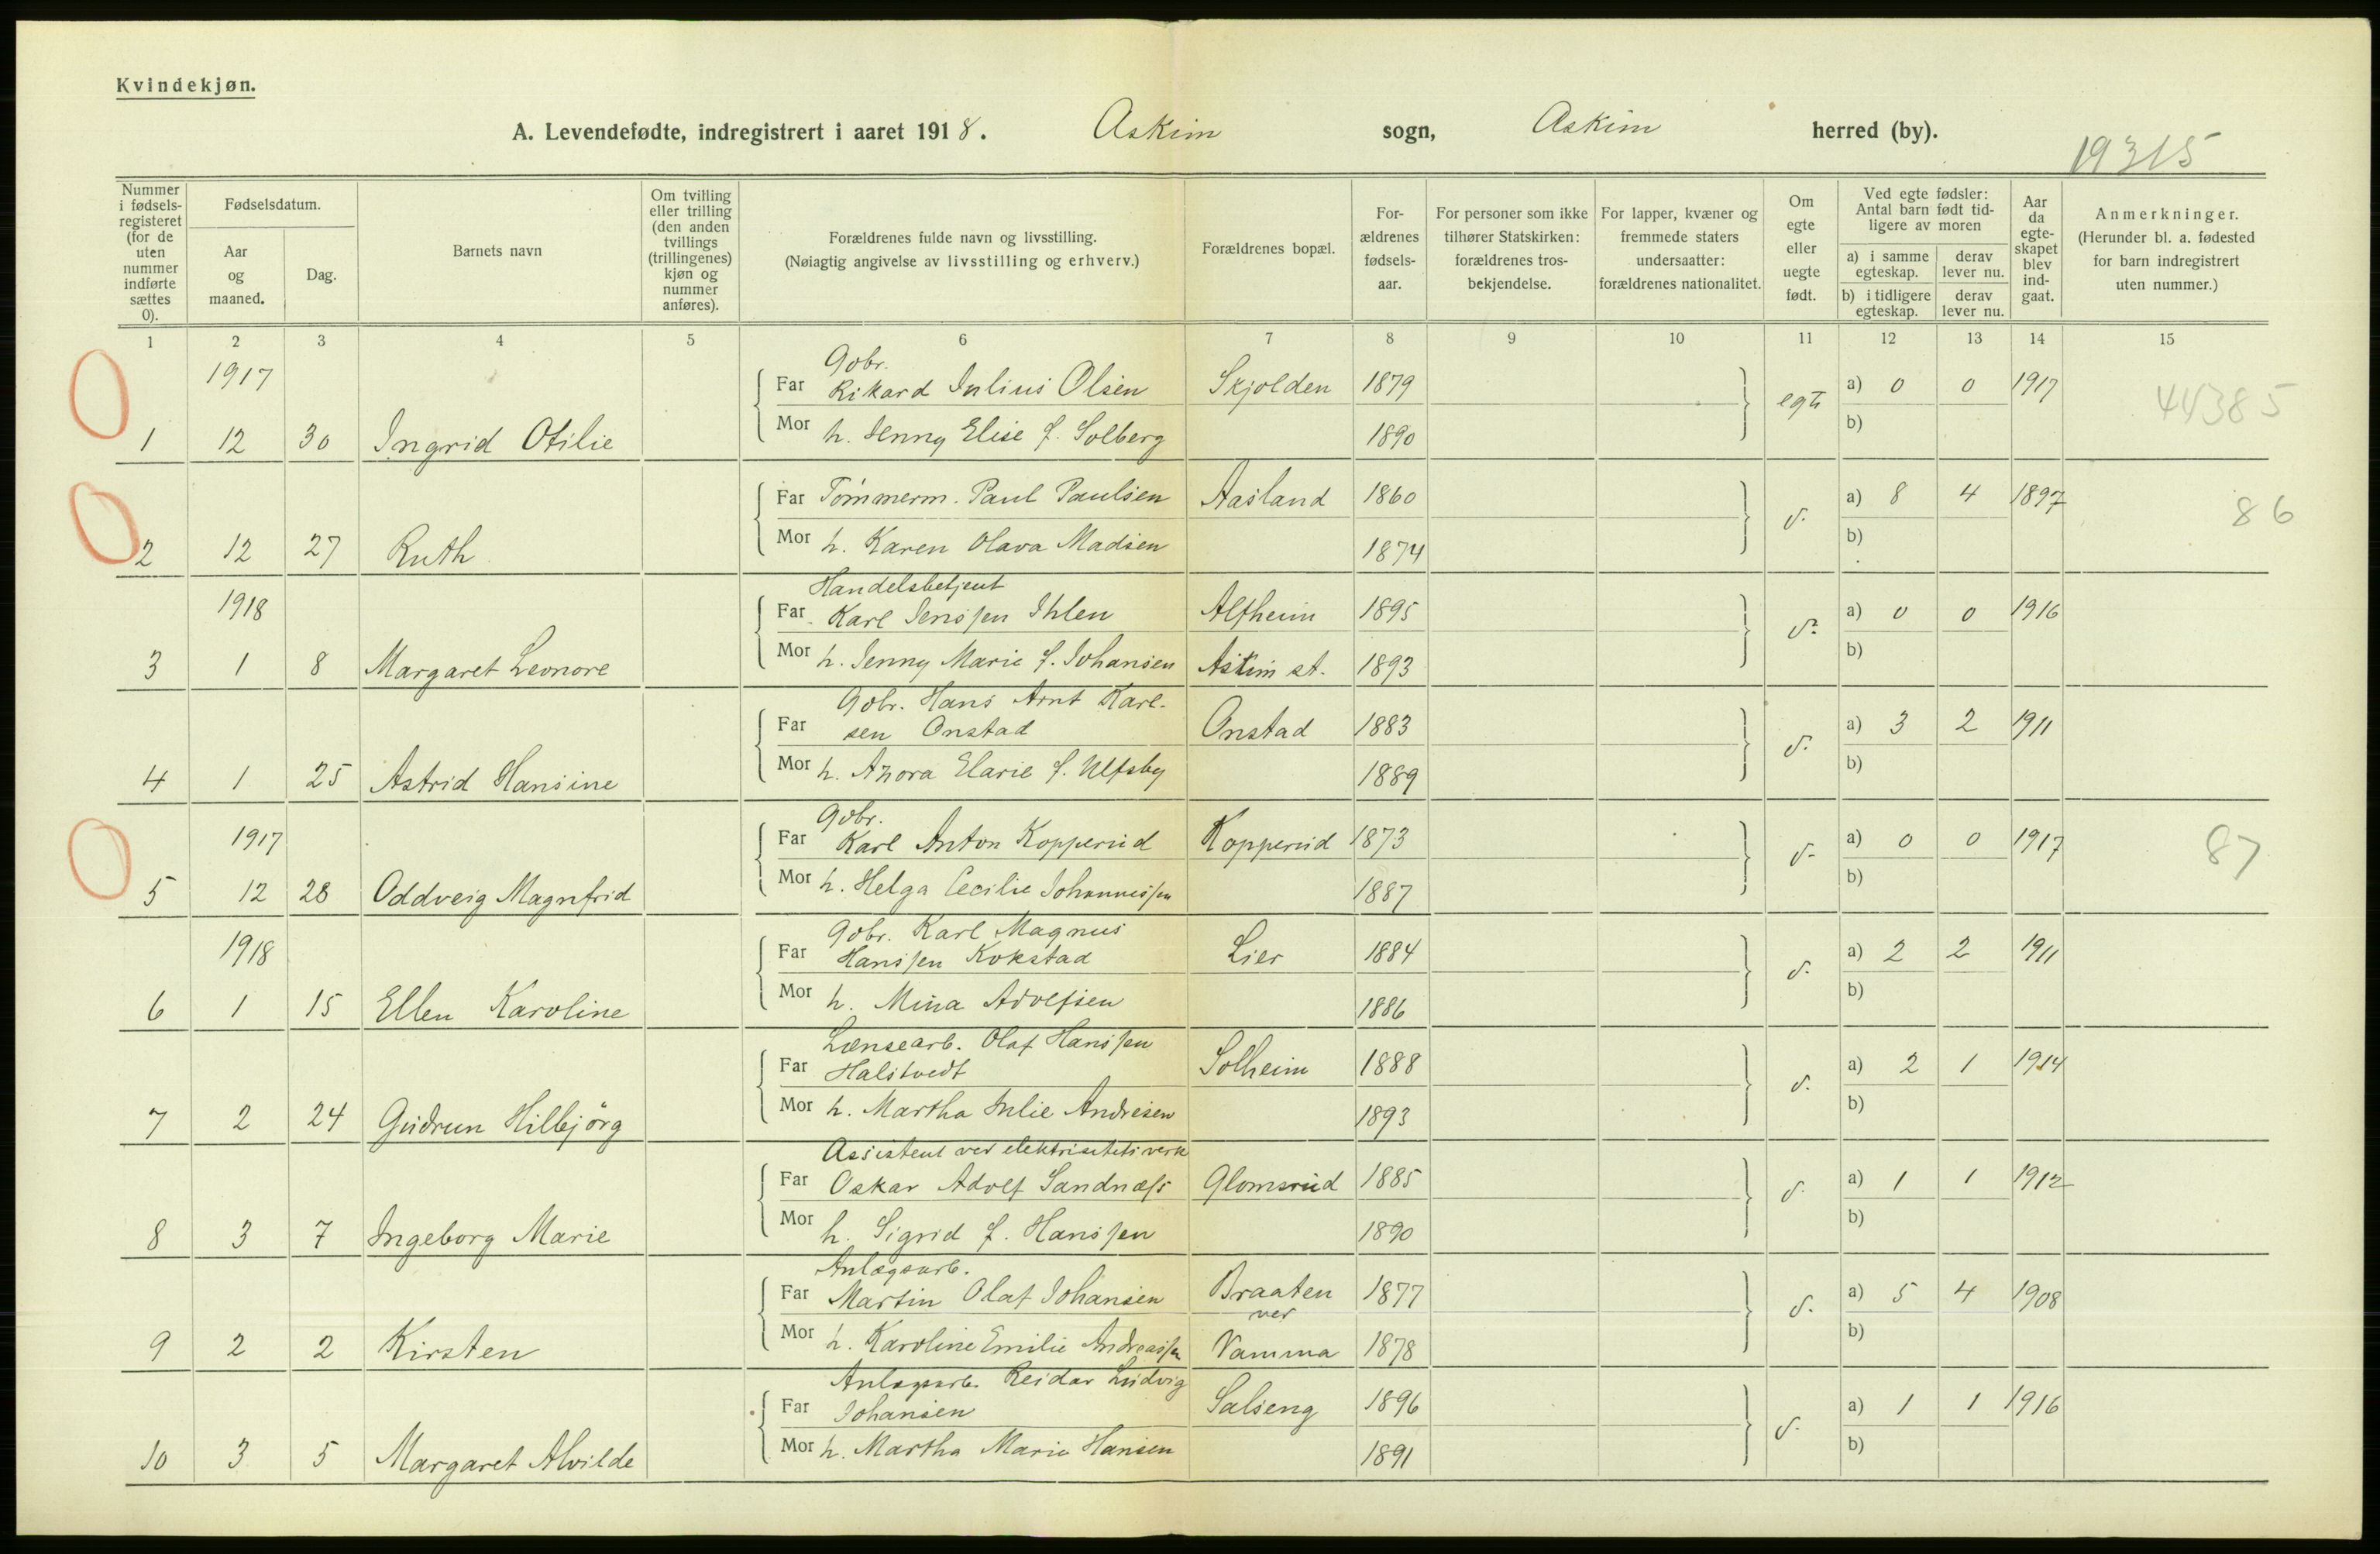 Kvindekjøn.
A. Levendefødte, indregistrert i aaret 1918. Askim sogn, Askim herred (by).
19315
Nummer i fødselsregisteret (for de uten nummer indførte sættes 0).
Fødselsdatum.
Aar og maaned.
Dag.
Barnets navn
Om tvilling eller trilling (den anden tvillings (trillingenes) kjøn og nummer anføres).
Forældrenes fulde navn og livsstilling.
(Nøiagtig angivelse av livsstilling og erhverv.)
Forældrenes bopæl.
Forældrenes fødselsaar.
For personer som ikke tilhører Statskirken: forældrenes trosbekjendelse.
For lapper, kvæner og fremmede staters undersaatter: forældrenes nationalitet.
Om egte eller uegte født.
Ved egte fødsler: Antal barn født tidligere av moren
a) i samme egteskap.
derav lever nu.
b) i tidligere egteskap.
derav lever nu.
Aar da egteskapet blev indgaat.
Anmerkninger.
(Herunder bl. a. fødested for barn indregistrert uten nummer.)
1 2 3 4 5 6 7 8 9 10 11 12 13 14 15
1917 Gbr.
Far Rikard Julius Olsen Skjolden 1879 egte a) 0 0 1917 44385
1 12 30 Ingrid Otilie Mor h. Jenny Elise f. Solberg 1890 b)
Far Tömmerm. Paul Paulsen Aasland 1860 d. a) 8 4 1897 86
2 12 27 Ruth Mor h. Karen Olava Madsen 1874 b)
1918 Handelsbetjent
Far Karl Jenssen Ihlen Altheim 1895 d. a) 0 0 1916
3 1 8 Margaret Leonore Mor h. Jenny Marie f. Johansen Askim st. 1893 b)
Gbr. Hans Arnt Karl-
Far sen Onstad Onstad 1883 d. a) 3 2 1911
4 1 25 Astrid Hansine Mor h. Azora Elarie f. Ulfsby 1889 b)
1917 Gbr.
Far Karl Anton Kopperud Kopperud 1873 d. a) 0 0 1917 87
5 12 28 Oddveig Magnfrid Mor h. Helga Cecilie Johannessen 1887 b)
1918 Gbr. Karl Magnus
Far Hanssen Kokstad Lier 1884 d. a) 2 2 1911
6 1 15 Ellen Karoline Mor h. Mina Adolfsen 1886 b)
Lænsearb. Olaf Hanssen
Far Halstvedt Solheim 1888 d. a) 2 1 1914
7 2 24 Gudrun Hilbjörg Mor h. Martha Julie Andresen 1893 b)
Assistent ved elektrisitetsverk
Far Oskar Adolf Sandnæss Glomsrud 1885 d. a) 1 1 1912
8 3 7 Ingeborg Marie Mor h. Sigrid f. Hanssen 1890 b)
Anlægsarb.
Far Martin Olaf Johansen Braaten 1877 d. a) 5 4 1908
ved
9 2 2 Kirsten Mor h. Karoline Emilie Andreassen Vamma 1878 b)
Anlægsarb. Reidar Ludvig
Far Johansen Salseng 1896 d. a) 1 1 1916
10 3 5 Margaret Alvilde Mor h. Martha Marie Hansen 1891 b)